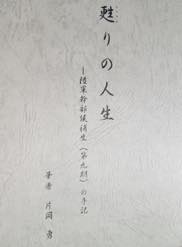 甦りの人生
―陸軍幹部候補生(第九期)の手記
著者 片岡 勇